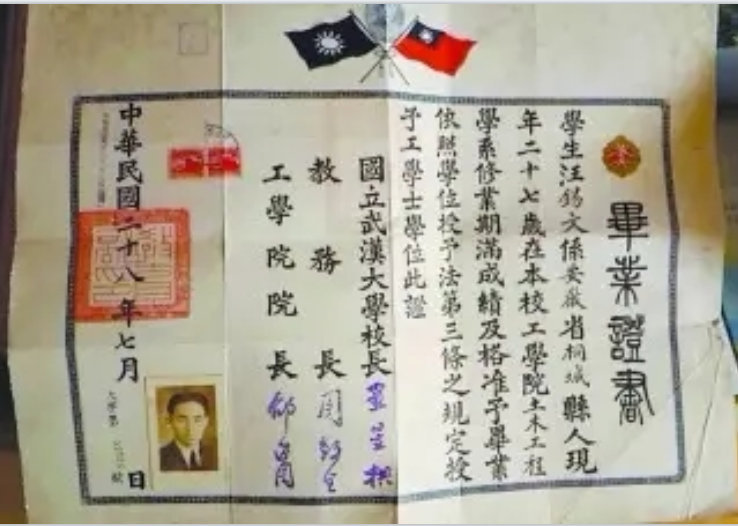 畢業證書
學生汪錫文係安徽省桐城縣人現
年二十七歲在本校工學院土木工程
學系修業期滿成績及格准予畢業
依照學位授予法第三條之規定授
予工學士學位此證
國立武漢大學校長
教務長
工學院院長
中華民國二十八年七月 日